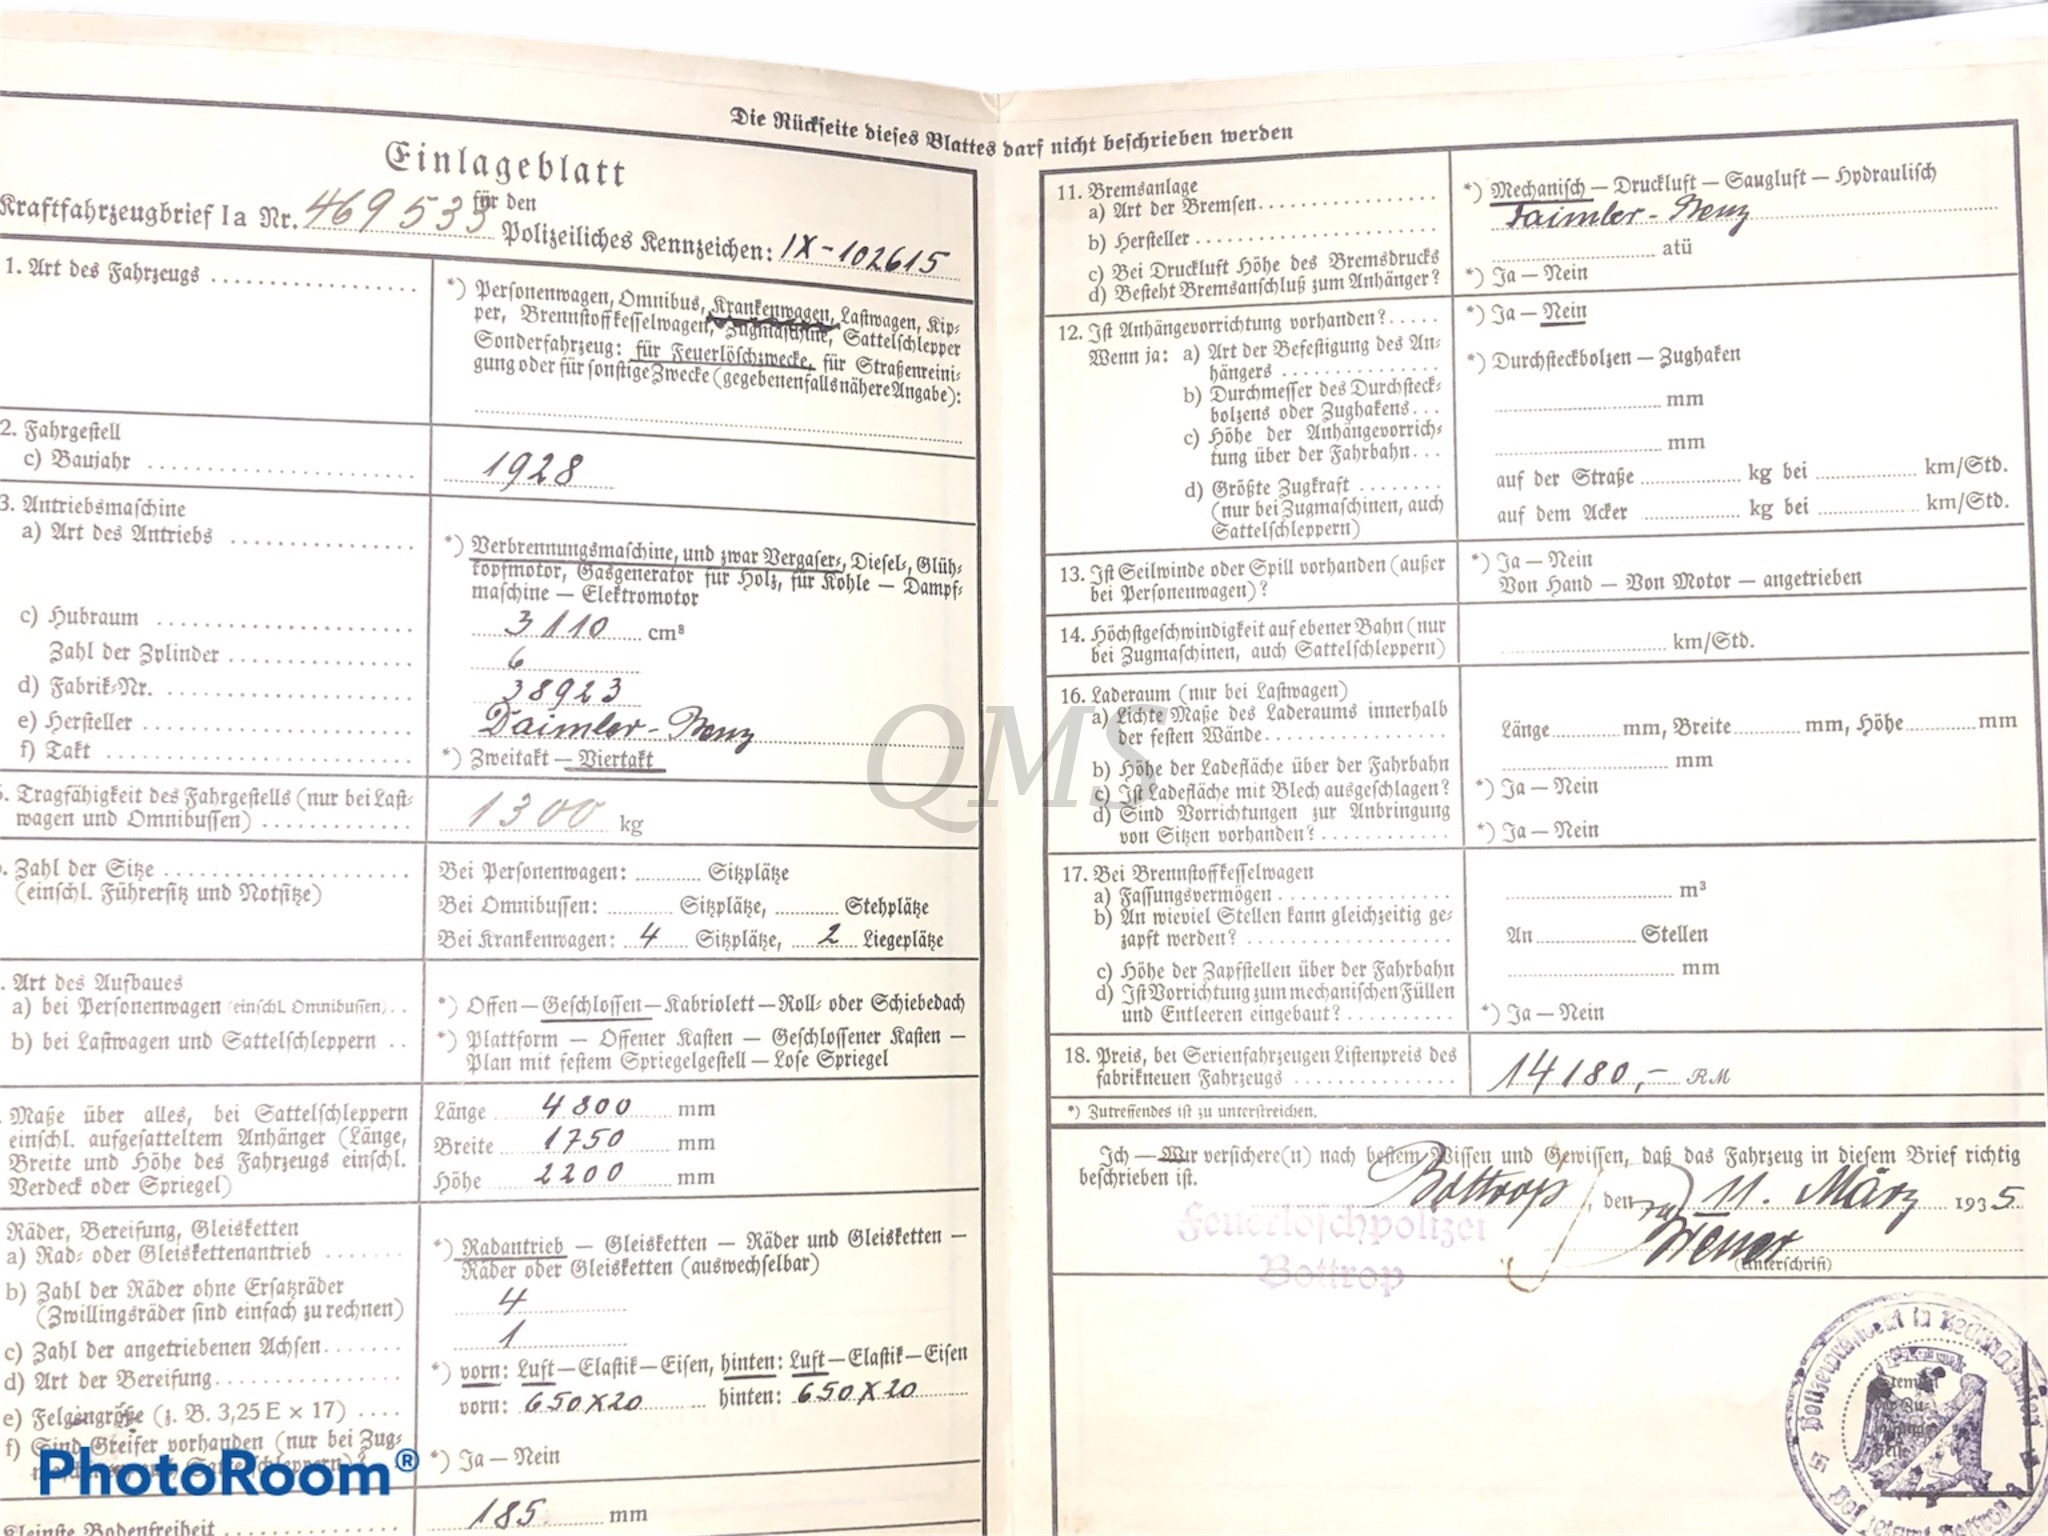 Die Rückseite dieses Blattes darf nicht beschrieben werden
Einlageblatt
für den
Kraftfahrzeugbrief Ia Nr. 469 533 Polizeiliches Kennzeichen: IX-102615
1. Art des Fahrzeugs
*) Personenwagen, Omnibus, Krankenwagen, Lastwagen, Kip-
per, Brennstoffkesselwagen, Zugmaschine, Sattelschlepper
Sonderfahrzeug: für Feuerlöschzwecke, für Straßenreini-
gung oder für sonstige Zwecke (gegebenenfalls nähere Angabe):
2. Fahrgestell
c) Baujahr 1928
3. Antriebsmaschine
a) Art des Antriebs
*) Verbrennungsmaschine, und zwar Vergaser-, Diesel-, Glüh-
kopfmotor, Gasgenerator für Holz, für Kohle — Dampf-
maschine — Elektromotor
c) Hubraum 3110 cm³
Zahl der Zylinder 6
d) Fabrik-Nr. 38923
e) Hersteller Daimler-Benz
f) Takt *) Zweitakt — Viertakt
Tragfähigkeit des Fahrgestells (nur bei Last-
wagen und Omnibussen) 1300 kg
Zahl der Sitze
(einschl. Führersitz und Notsitze)
Bei Personenwagen: Sitzplätze
Bei Omnibussen: Sitzplätze, Stehplätze
Bei Krankenwagen: 4 Sitzplätze, 2 Liegeplätze
Art des Aufbaues
a) bei Personenwagen (einschl. Omnibussen) *) Offen — Geschlossen — Kabriolett — Roll- oder Schiebedach
b) bei Lastwagen und Sattelschleppern *) Plattform — Offener Kasten — Geschlossener Kasten —
Plan mit festem Spriegelgestell — Lose Spriegel
Maße über alles, bei Sattelschleppern
einschl. aufgesatteltem Anhänger (Länge,
Breite und Höhe des Fahrzeugs einschl.
Verdeck oder Spriegel)
Länge 4800 mm
Breite 1750 mm
Höhe 2200 mm
Räder, Bereifung, Gleisketten
a) Rad- oder Gleiskettenantrieb *) Radantrieb — Gleisketten — Räder und Gleisketten —
Räder oder Gleisketten (auswechselbar)
b) Zahl der Räder ohne Ersatzräder
(Zwillingsräder sind einfach zu rechnen) 4
c) Zahl der angetriebenen Achsen 1
d) Art der Bereifung *) vorn: Luft — Elastik — Eisen, hinten: Luft — Elastik — Eisen
e) Felgengröße (z. B. 3,25 E × 17) vorn: 650x20 hinten: 650x20
f) Sind Greifer vorhanden (nur bei Zug-
*) Ja — Nein
Kleinste Bodenfreiheit 185 mm
11. Bremsanlage
a) Art der Bremsen *) Mechanisch — Druckluft — Saugluft — Hydraulisch
b) Hersteller Daimler-Benz
c) Bei Druckluft Höhe des Bremsdrucks atü
d) Besteht Bremsanschluß zum Anhänger? *) Ja — Nein
12. Ist Anhängevorrichtung vorhanden? *) Ja — Nein
Wenn ja: a) Art der Befestigung des An-
hängers *) Durchsteckbolzen — Zughaken
b) Durchmesser des Durchsteck-
bolzens oder Zughakens mm
c) Höhe der Anhängevorrich-
tung über der Fahrbahn mm
d) Größte Zugkraft auf der Straße kg bei km/Std.
(nur bei Zugmaschinen, auch
Sattelschleppern) auf dem Acker kg bei km/Std.
13. Ist Seilwinde oder Spill vorhanden (außer
bei Personenwagen)?
*) Ja — Nein
Von Hand — Von Motor — angetrieben
14. Höchstgeschwindigkeit auf ebener Bahn (nur
bei Zugmaschinen, auch Sattelschleppern) km/Std.
16. Laderaum (nur bei Lastwagen)
a) Lichte Maße des Laderaums innerhalb
der festen Wände Länge mm, Breite mm, Höhe mm
b) Höhe der Ladefläche über der Fahrbahn mm
c) Ist Ladefläche mit Blech ausgeschlagen? *) Ja — Nein
d) Sind Vorrichtungen zur Anbringung
von Sitzen vorhanden? *) Ja — Nein
17. Bei Brennstoffkesselwagen
a) Fassungsvermögen m³
b) An wieviel Stellen kann gleichzeitig ge-
zapft werden? An Stellen
c) Höhe der Zapfstellen über der Fahrbahn mm
d) Ist Vorrichtung zum mechanischen Füllen
und Entleeren eingebaut? *) Ja — Nein
18. Preis, bei Serienfahrzeugen Listenpreis des
fabrikneuen Fahrzeugs 14180,- RM
*) Zutreffendes ist zu unterstreichen.
Ich — Wir versichere(n) nach bestem Wissen und Gewissen, daß das Fahrzeug in diesem Brief richtig
beschrieben ist.
Bottrop, den 11. März 1935
(Unterschrift)
Feuerlöschpolizei
Bottrop
QMS
PhotoRoom®